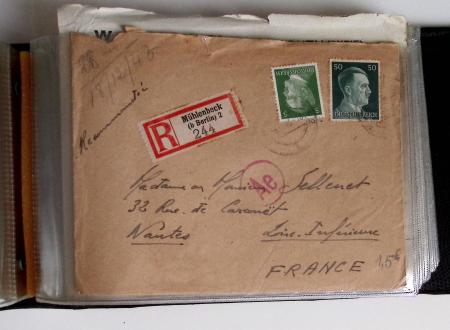 W
28
18/2/43
Recommandé
R
Mühlenbeck
(b Berlin) 2
244
5
50 50
DEUTSCHES REICH
Ae
Madame ou Monsieur Sellenet
32 Rue. de
Nantes
Loire-Inférieure
FRANCE
1,5€